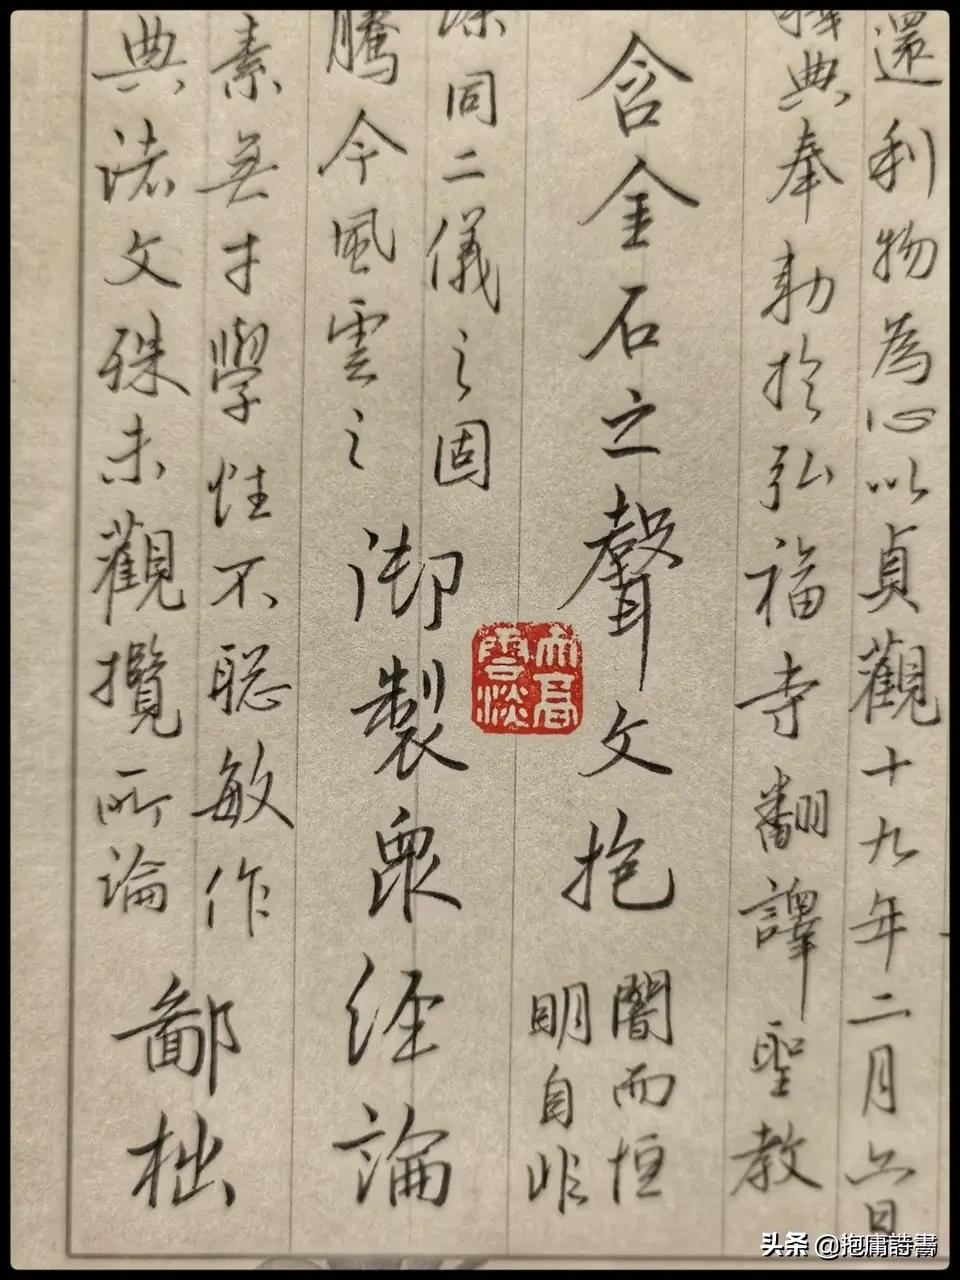 還利物為心以貞觀十九年二月六日
典奉勅於弘福寺翻譯聖教
含金石之聲文抱
闇而恒
明自非
同二儀之固
騰今風雲之
御製眾經論
素無才學性不聰敏作
典諸文殊未觀攬所論
鄙拙
天高雲淡
头条 @抱庸詩書